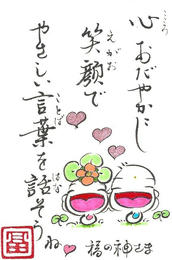 心おだやかに
笑顔で
やさしい言葉を話そうね
福の神さま
こころ
えがお
ことば
はな